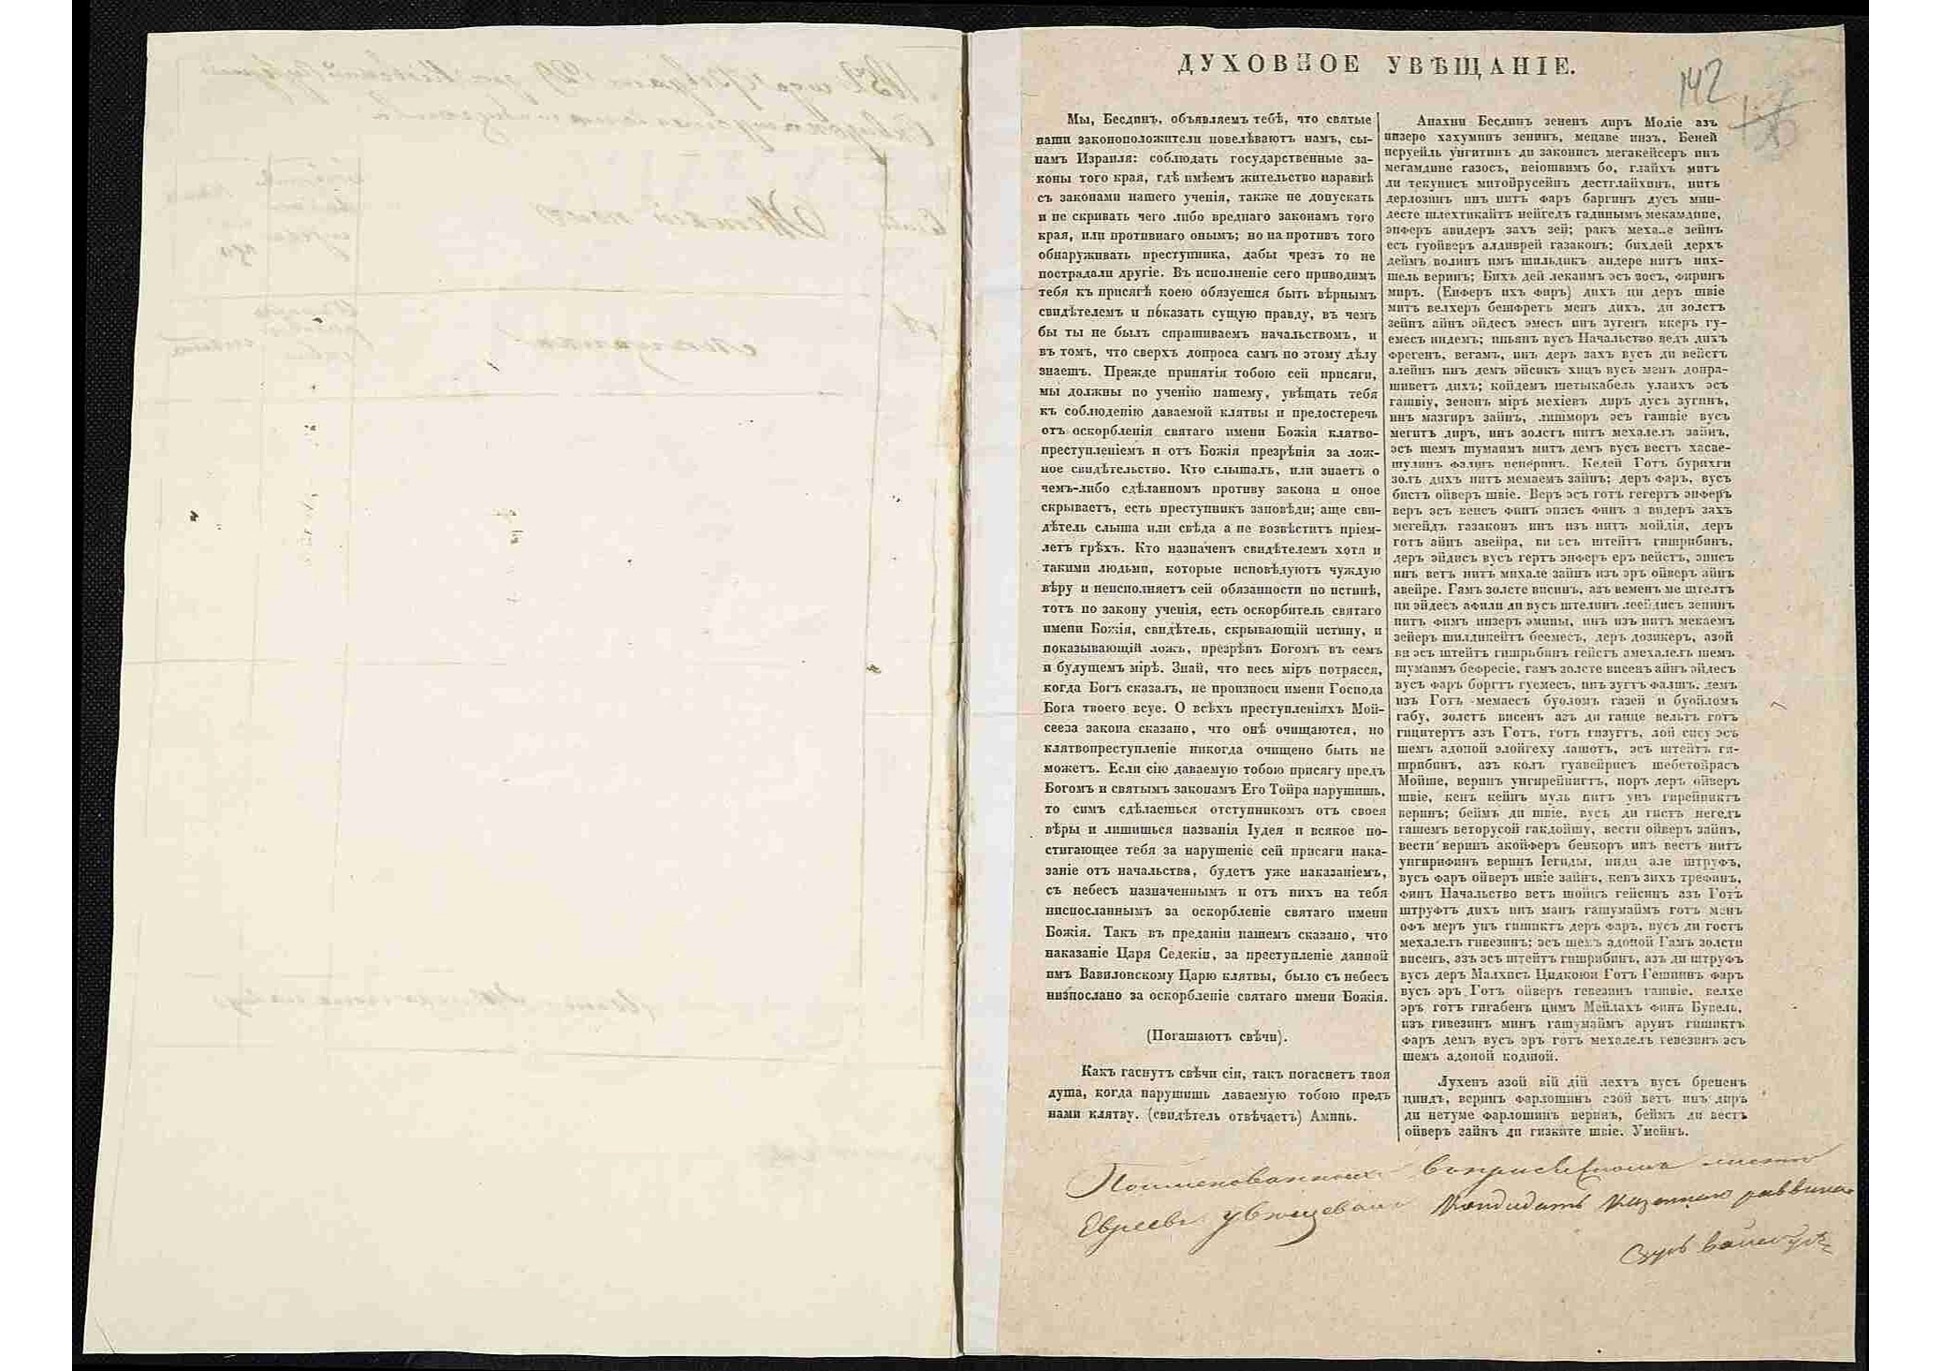 ДУХОВНОЕ УВѢЩАНІЕ.
142
Мы, Бесдинъ, объявляемъ тебѣ, что святые
наши законоположители повелѣваютъ намъ, сы-
намъ Израиля: соблюдать государственные за-
коны того края, гдѣ имѣемъ жительство наравнѣ
съ законами нашего ученія, также не допускать
и не скривать чего либо вреднаго законамъ того
края, или противнаго онымъ; но на противъ того
обнаруживать преступника, дабы чрезъ то не
пострадали другіе. Въ исполненіе сего приводимъ
тебя къ присягѣ коею обязуешся быть вѣрнымъ
свидѣтелемъ и показать сущую правду, въ чемъ
бы ты не былъ спрашиваемъ начальствомъ, и
въ томъ, что сверхъ допроса самъ по этому дѣлу
знаешь. Прежде принятія тобою сей присяги,
мы должны по ученію нашему, увѣщать тебя
къ соблюденію даваемой клятвы и предостеречь
отъ оскорбленія святаго имени Божія клятво-
преступленіемъ и отъ Божія презрѣнія за лож-
ное свидѣтельство. Кто слышалъ, или знаетъ о
чемъ-либо сдѣланномъ противу закона и оное
скрываетъ, есть преступникъ заповѣди; аще сви-
дѣтель слыша или свѣда а не возвѣститъ пріем-
летъ грѣхъ. Кто назначенъ свидѣтелемъ хотя и
такими людьми, которые исповѣдуютъ чуждую
вѣру и неисполняетъ сей обязанности по истинѣ,
тотъ по закону ученія, есть оскорбитель святаго
имени Божія, свидѣтель, скрывающій истину, и
показывающій ложъ, презрѣнъ Богомъ въ семъ
и будущемъ мірѣ. Знай, что весь міръ потрясся,
когда Богъ сказалъ, не произноси имени Господа
Бога твоего всуе. О всѣхъ преступленіяхъ Мой-
сеева закона сказано, что онѣ очищаются, но
клятвопреступленіе никогда очищено быть не
можетъ. Если сію даваемую тобою присягу предъ
Богомъ и святымъ законамъ Его Тойра нарушишь,
то симъ сдѣлаешься отступникомъ отъ своея
вѣры и лишишься названія Іудея и всякое по-
стигающее тебя за нарушеніе сей присяги нака-
заніе отъ начальства, будетъ уже наказаніемъ,
съ небесъ назначеннымъ и отъ нихъ на тебя
ниспосланнымъ за оскорбленіе святаго имени
Божія. Такъ въ преданіи нашемъ сказано, что
наказаніе Царя Седекіи, за преступленіе данной
имъ Вавилонскому Царю клятвы, было съ небесъ
низпослано за оскорбленіе святаго имени Божія.
(Погашаютъ свѣчи).
Какъ гаснутъ свѣчи сіи, такъ погаснетъ твоя
душа, когда нарушишь даваемую тобою предъ
нами клятву. (свидѣтель отвѣчаетъ) Аминь.
Анахни Бесдинъ зенен диръ Модіе азъ
инзеро хахуминъ зенинъ, мецаве инзъ, Беней
исруейль унгитинъ ди законисъ мегакейсеръ инъ
мегамдине газосъ, веіошвимъ бо, глайхъ митъ
ди текунисъ митойрусейнъ дестглайхинъ, нитъ
дерлозинъ инъ нитъ фаръ баргинъ дусъ мин-
десте шлехтикайтъ нейгедъ гадинымъ мекамдине,
энферъ авидеръ захъ зей; ракъ зейнъ
есъ гуойверъ алдиврей газаконъ; бихдей дерхъ
деймъ волинъ имъ шильдикъ андере нитъ них-
шель веринъ; Бихъ дей лекаимъ эсъ восъ, фиринъ
миръ. (Енферъ ихъ фиръ) дихъ ци деръ швіе
митъ велхеръ бешфретъ менъ дихъ, ди золстъ
зейнъ айнъ эйдесъ эмесъ инъ зугенъ икеръ гу-
емесъ индемъ; иньянъ вусъ Начальство ведъ дихъ
фрегенъ, вегамъ, инъ деръ захъ вусъ ди вейстъ
алейнъ инъ демъ эйсикъ хицъ вусъ менъ допра-
шиветъ дихъ; койдемъ шетыкабель улаихъ эсъ
гашвіу, зененъ міръ мехіевъ диръ дусъ зугинъ,
инъ мазгиръ зайнъ, лишморъ эсъ гашвіе вусъ
мегитъ диръ, инъ золстъ нитъ мехалелъ зайнъ,
эсъ шемъ шумаимъ митъ демъ вусъ вестъ хасве-
шулинъ фалшъ исперинъ. Келей Готъ бурихги
золъ дихъ нитъ мемаемъ зайнъ; деръ фаръ, вусъ
бистъ ойверъ швіе. Веръ эсъ готъ гегертъ энферъ
веръ эсъ венсъ финъ эписъ финъ а видеръ захъ
мегейдъ газаконъ инъ изъ нитъ мойдія, деръ
готъ айнъ авейра, ви эсъ штейтъ гишрибинъ,
деръ эйдисъ вусъ гертъ энферъ еръ вейстъ, эписъ
инъ ветъ нитъ михале зайнъ изъ эръ ойверъ айнъ
авейре. Гамъ золсте висинъ, азъ веменъ ме штелтъ
ци эйдесъ афили ди вусъ штелинъ лсейдисъ зенинъ
нитъ фимъ инзеръ эмины, инъ изъ нитъ мекаемъ
зейеръ шилдикейтъ беемесъ, деръ дозикеръ, азой
ви эсъ штейтъ гишрибинъ гейстъ амехалелъ шемъ
шумаимъ бефресіе, гамъ золсте висенъ айнъ эйдесъ
вусъ фаръ боргтъ гуемесъ, инъ зугтъ фалшъ, демъ
изъ Готъ мемаесъ буоломъ газей и буойломъ
габу, золстъ висенъ азъ ди ганце вельтъ готъ
гицитертъ азъ Готъ, готъ гизугтъ, лой сису эсъ
шемъ адоной элойгеху лашотъ, эсъ штейтъ ги-
шрибинъ, азъ колъ гуавейрисъ шебетойрасъ
Мойше, веринъ унгирейнигтъ, норъ деръ ойверъ
швіе, кенъ кейнъ муль нитъ унъ гирейниктъ
веринъ; беймъ ди швіе, вусъ ди гистъ негедъ
гашемъ веторусой гакдойшу, вести ойверъ зайнъ,
вести веринъ акойферъ беикоръ инъ вестъ нитъ
унгирифинъ веринъ Іегиды, инди але штруфъ,
вусъ фаръ ойверъ швіе зайнъ, кенъ зихъ трефинъ,
финъ Начальство ветъ шойнъ гейсинъ азъ Готъ
штруфтъ дихъ инъ манъ гашумаймъ готъ менъ
офъ меръ унъ гишиктъ деръ фаръ, вусъ ди гостъ
мехалелъ гивезинъ; эсъ шемъ адоной Гамъ золсти
висенъ, азъ эсъ штейтъ гишрибинъ, азъ ди штруфъ
вусъ деръ Малхисъ Цидкоюи Готъ Гешпинъ фаръ
вусъ эръ Готъ ойверъ гевезинъ гашвіе, велхе
эръ готъ гигабенъ цимъ Мейлахъ финъ Бувель,
изъ гивезинъ минъ гашумаймъ арунъ гишиктъ
фаръ демъ вусъ эръ готъ мехалелъ гевезинъ эсъ
шемъ адоной кодшой.
Лухенъ азой вій дій лехтъ вусъ брененъ
циндъ, веринъ фарлошинъ азой ветъ инъ диръ
ди нетуме фарлошинъ веринъ, беймъ ди вестъ
ойверъ зайнъ ди гизките швіе. Умейнъ.
Поименованныхъ в присяжномъ листе
Евреевъ увѣщевалъ Кандидатъ Казеннаго раввина